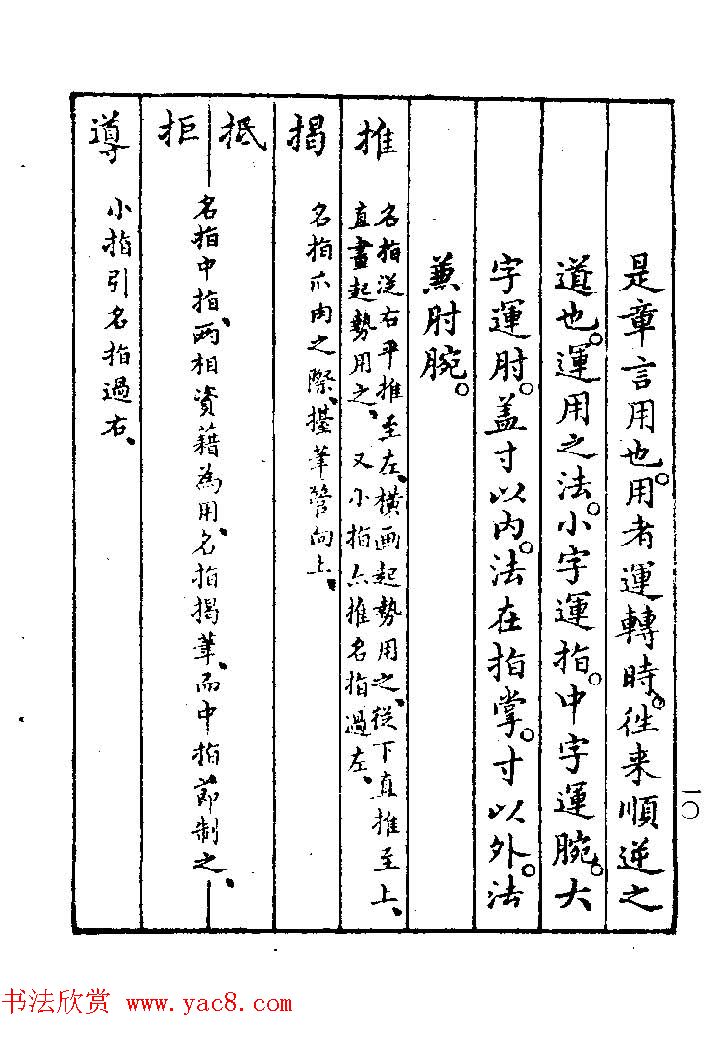 是章言用也。用者運轉時。徃来順逆之
道也。運用之法。小字運指。中字運腕。大
字運肘。盖寸以内。法在指掌。寸以外。法
兼肘腕。
推
名指從右平推至左、横画起勢用之、從下直推至上、
直畫起勢用之、又小指亦推名指過左、
揭
名指爪肉之際、擡筆管向上、
抵
拒
名指中指、兩相資藉為用、名指揭筆、而中指節制之、
導
小指引名指過右、
一〇
书法欣赏 www.yac8.com